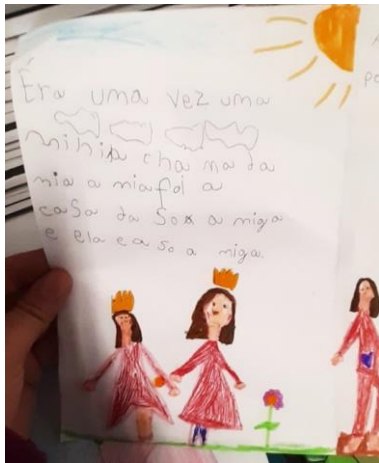 Era uma vez uma
minina chamada
mia a mia foi a
casa da soa amiga
e ela e a so a miga.